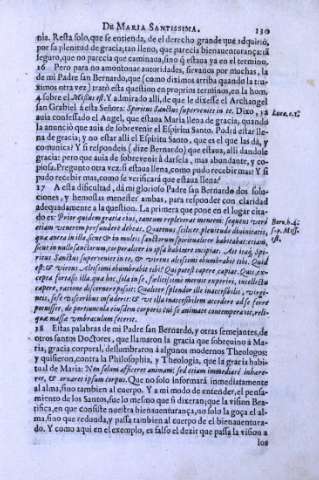 DE MARIA SANTISSIMA. 130
nia. Resta solo, que se entienda, de el derecho grande que adquirió,
por su plenitud de gracia, tan lleno, que parecia bienaventurança: tã
seguro, que no parecia que caminaua, sino q̃ estaua ya en el termino.
26 Pero para no amontonar autoridades, siruanos por muchas, la
de mi Padre san Bernardo, que (como diximos arriba quando la tra-
ximos otra vez) trató esta question en proprios terminos, en la hom.
4. sobre el Missus est. Y admirado alli, de que le dixesse el Archangel
san Grabiel á esta Señora: Spiritus Sanctus superueniet in te. Dixo, ya Luca. c. 1.
auia confessado el Angel, que estaua Maria llena de gracia, quando
la anunció que auia de sobrevenir el Espiritu Santo. Podrá estar lle-
na de gracia; y no estar alli el Espiritu Santo, que es el que las dá, y
comunica? Y si respondeis (dize Bernardo) que estaua, alli dandole
gracia: pero que auia de sobrevenir à darsela, mas abundante, y co-
piosa. Pregunto otra vez, si estaua llena, como pudo recebir mas? Y si
pudo recebir mas, como se verificará que estaua llena?
27 A esta dificultad, dá mi glorioso Padre san Bernardo dos solu-
ciones, y hemoslas menester ambas, para responder con claridad
adequadamente a la question. La primera que pone en el lugar cita-
do es: Prior quidem gratia eius, tantum repleuerat mentem: sequens verò Bern. h. 4.
etiam ventrem persundere debeat. Quatenus, scilicet, plenitudo diuinitatis, sup. Miss.
quæ antea in illa, sicut & in multis sanctorum spiritualiter habitabat: etiam, est.
sicut in nullo sanctorum, corporaliter in ipsa habitare incipiat. Ait itaq; Spi-
ritus Sanctus superueniet in te, & virtus altissimi obumbrabit tibi. Quid
est: & virtus Altissimi obumbrabit tibi? Qui potest capere, capiat. Quis, ex-
cepta fortasse illa, quæ hoc, sola in se, felicissimè meruit experiri, intellectu
capere, ratione discernere possit: Qualiter splendor ille inaccessibilis, virgi-
neis, sese visceribus infuderit: & vt illa inaccessibilem accedere ad se ferre
potuisset, de portiuncula eiusdem corporis cui se animæ contemperauit, reli-
quæ massæ vmbraculum fecerit.
28 Estas palabras de mi Padre san Bernardo, y otras semejantes, de
otros santos Doctores, que llamaron la gracia que sobrevino à Ma-
ria, gracia corporal, deslumbraron à algunos modernos Theologos:
y quisieron, contra la Philosophia, y Theologia, que la gracia habi-
tual de Maria: Non solum afficeret animam: sed etiam immediatè inhære-
ret, & ornaret ipsum corpus. Que no solo informará inmediatamente
al alma, sino tambien al cuerpo. Y a mi modo de entender, el pensa-
miento de los Santos, fue lo mesmo que si dixeran; que la vision Bea-
tifica, en que consiste nuestra bienauenturança, no solo la goça el al-
ma, sino que redunda, y passa tambien al cuerpo de el bienaventura-
do. Y como aqui en el exemplo, es falso el dezir que passa la vision a
los